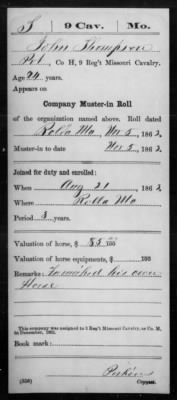 T | 9 Cav. | Mo.
John Thompson
Pvt., Co H, 9 Reg't Missouri Cavalry.
Age 24 years.
Appears on
Company Muster-in Roll
of the organization named above. Roll dated
Rolla Mo, Nov 5, 1862.
Muster-in to date Nov 5, 1862.
Joined for duty and enrolled:
When Aug 21, 1862
Where Rolla Mo
Period 3 years.
Valuation of horse, $ 85 /100
Valuation of horse equipments, $ /100
Remarks: Furnished his own
Horse
This company was assigned to 3 Reg't Missouri Cavalry, as Co. M,
in December, 1862.
Book mark:
(356) Perkins
Copyist.